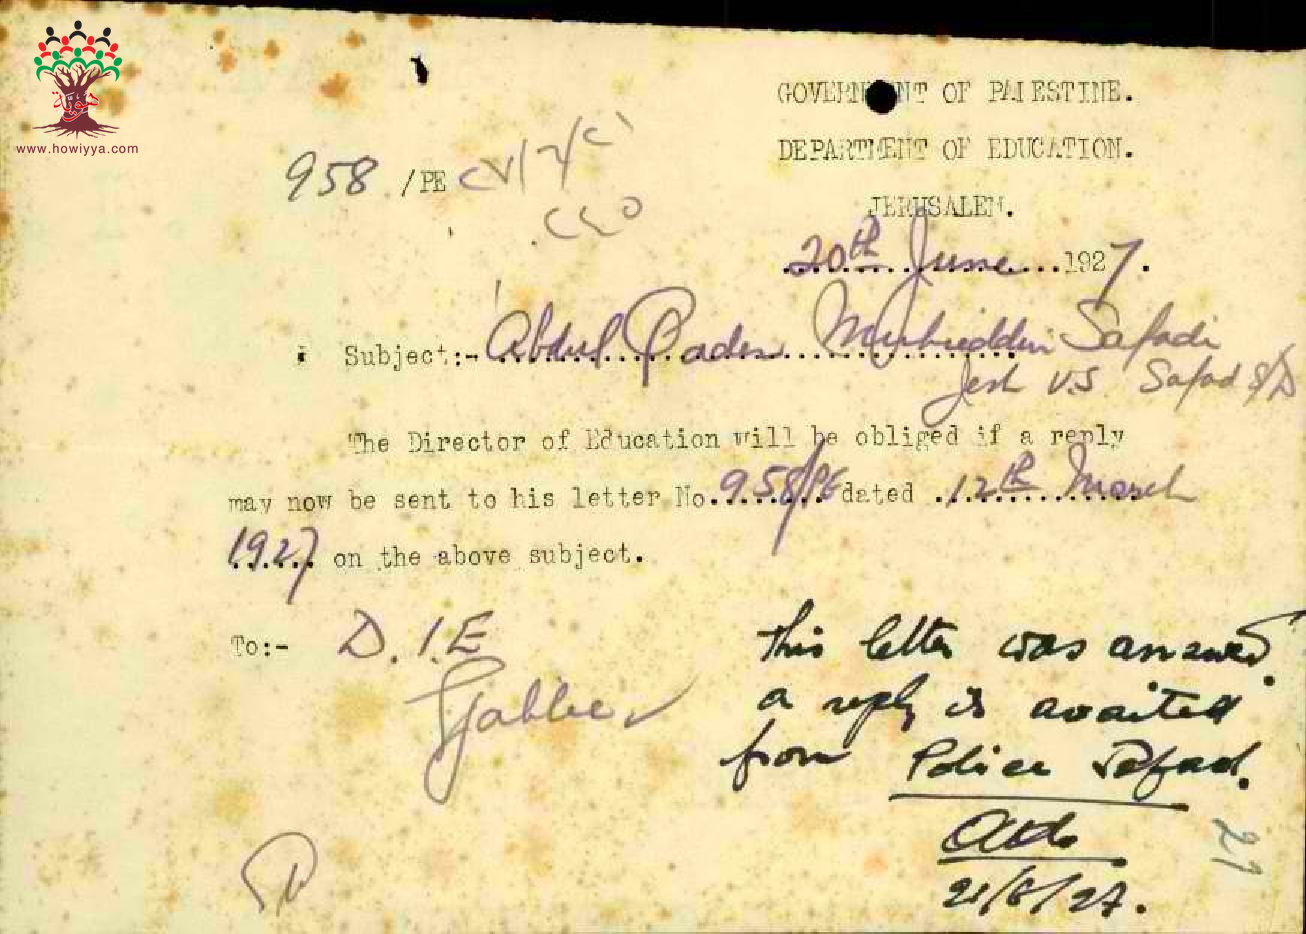 www.howiyya.com
GOVERN NT OF PALESTINE.
DEPARTMENT OF EDUCATION.
JERUSALEM.
958 /PE
20th June 1927.
Subject:- Abdul Qader Muhieddin Safadi
Jesh V.S Safad S/D
The Director of Education will be obliged if a reply
may now be sent to his letter No. 958/PE dated 12th March
1927 on the above subject.
To:- D.I.E
This letter was answered
a reply is awaited
from Police Safad.
21/6/27.
21